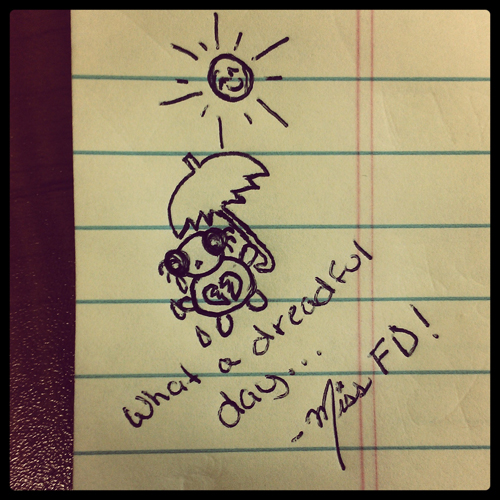 What a dreadful
day...
-Miss FD!